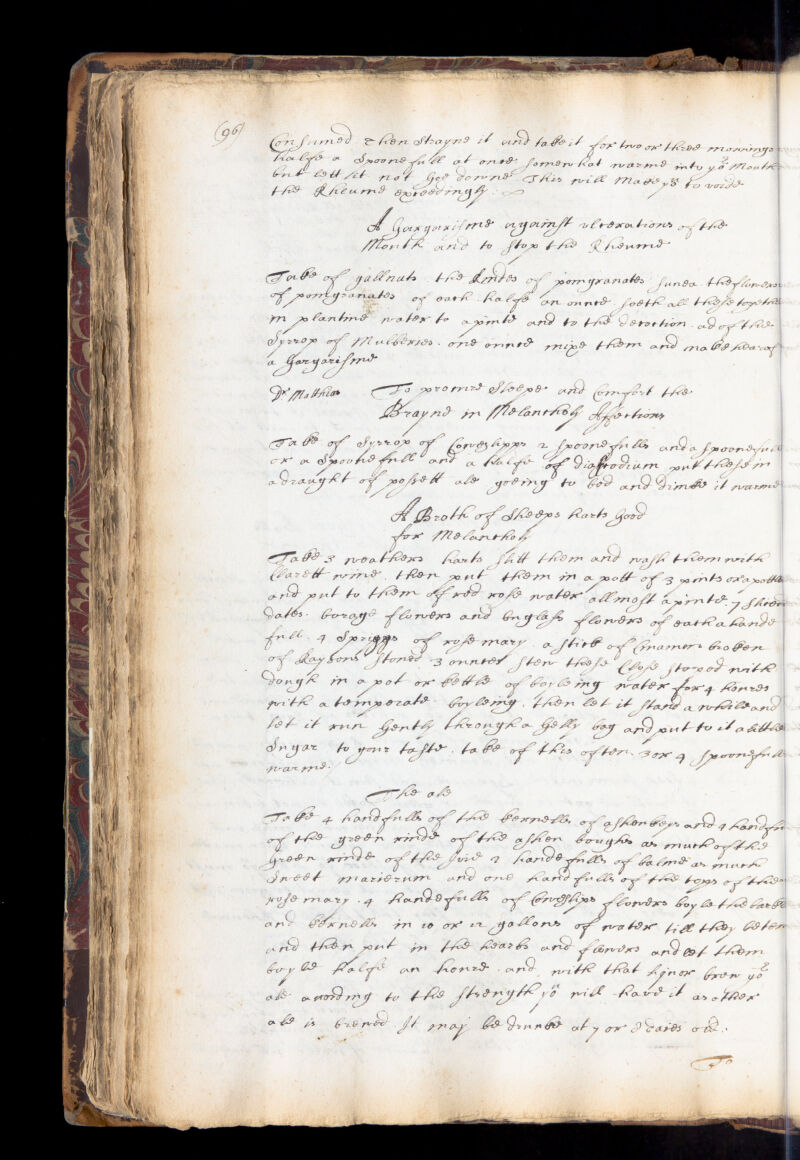 (96)
Consumed then Strayne it and take it for two or three mornings
halfe a Spoonefull at once somewhat warme into yor Mouth
but lett it not goe downe This will Make you to voide
the Rheume exceedingly:
A Gargarisme against ulcerations of the
Mouth and to stop the Rheume
Take of gallnuts the Rindes of pomgranates the flowers
of pomgranates of each halfe an ounce seeth all these together
in plantine water to a pinte and to the decoction ad of the
Syrrop of Mulberies one ounce mixe them and make heareof
a Gargarisme
Dr Mathias To procure Sleepe and Comfort the
Brayne in Melancholy Affections
Take of Syrrop of Cowslipps 2 spoonefulls and a spoonefull
or a Spoonefull and a halfe of diascodium put these in
a draught of possett ale goeing to bed and drinke it warme
A Broth of Sheeps harts Good
for Melancholy
Take 3 weathers harts slitt them and wash them with
Clarett wine then put them in a pott of 3 pints or a pottle
and put to them of red rose water allmost a pinte 7 Sliced
dates borage flowers and buglass flowers of each a hande
full 4 Spriggs of rosemary a stick of Cinamon broken
of Raysons stoned 3 ounces stew these Close stopped with
dough in a pot or kettle of boyleing water for 4 houres
with a temperate boyleing then let it stand a while and
let it run Gently through a Gelly bag and put to it a little
Sugar to your taste take of this often 3 or 4 spoonefulls
warme.
The ale
Take 4 handfulls of the kernells of ashenkeys and 4 handfulls
of the green rinde of the ashen boughs as much of the
Green rinde of the 2 handefulls of balme as much
Sweet marierum and one handfulls of the tops of the
rosemary 4 handefulls of Cowslips flowers boyle the barke
and kernells in 10 or 12 gallons of water till they
and then put in the hearbs and flowers and let them
boyle halfe an houre and with that liquor brew yor
ale according to the strength you will have it as other
ale is brewed It may be drunke at 7 or 8 daies old:
To